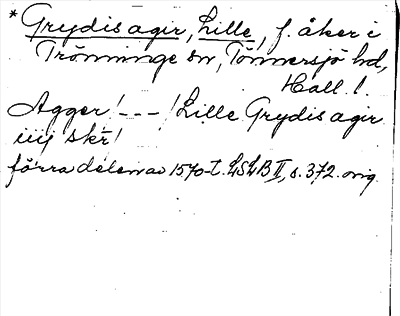 * Grydis agir, Lille, f. åker i
Trönninge sn, Tönnersjö hd,
Hall. l.
Agger! - - - ! Lille Grydis agir
iiij skr!
förra delen av 1570-t. LSLB II, s. 372. orig.